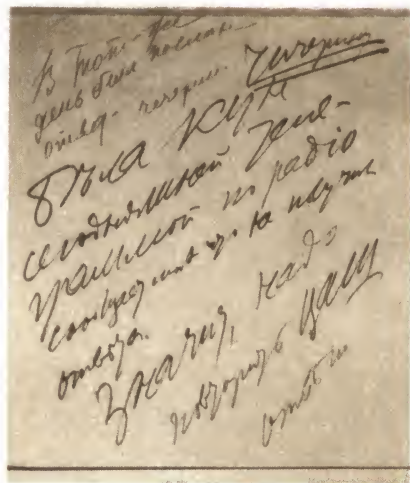 В тот же
день был послан
ответ. Чичерин.
Чичерину
Бѣла Кун
сегодняшней теле-
граммой по радіо
сообщает что не получил
отвѣта.
Значит, надо
повторить наш
отвѣт